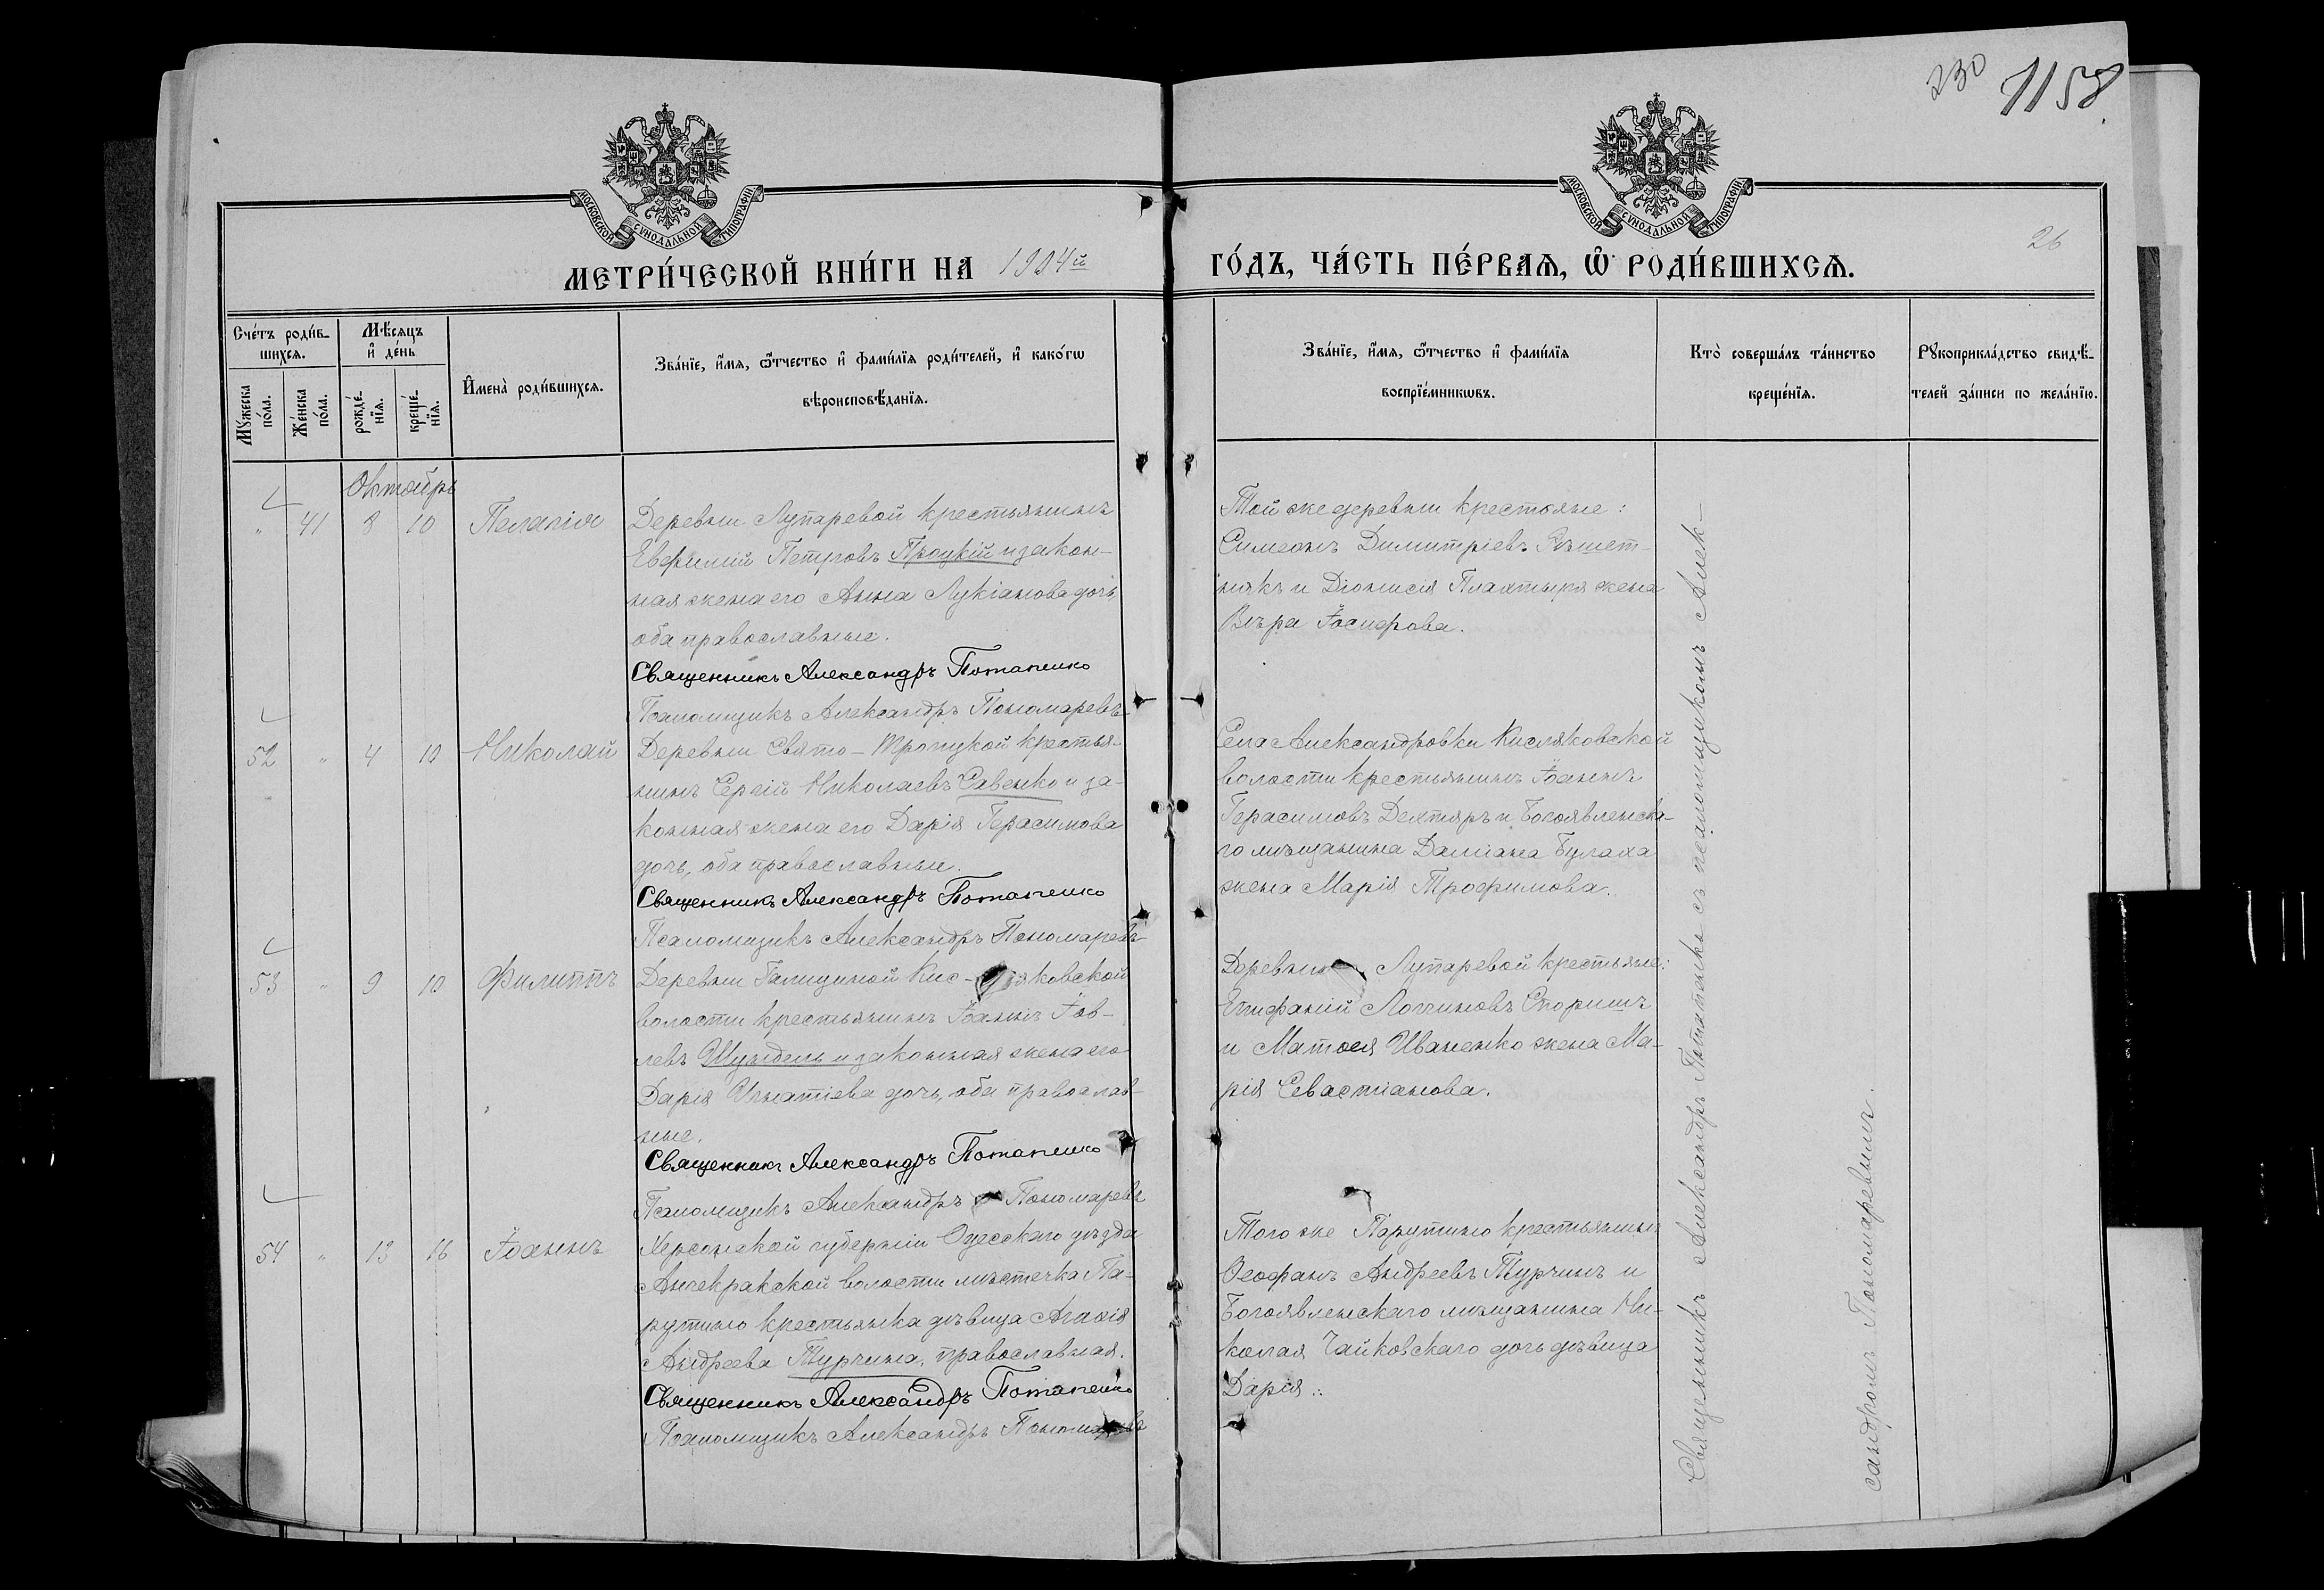 230 1158
МОСКОВСКОЙ СУНОДАЛЬНОЙ ТИПОГРАФІИ
МОСКОВСКОЙ СУНОДАЛЬНОЙ ТИПОГРАФІИ
26
МЕТРИ́ЧЕСКОЙ КНИ́ГИ НА 1904й ГО́ДЪ, ЧА́СТЬ ПЕ́РВАѦ, Ѽ РОДИ́ВШИХСѦ.
Сче́тъ роди́в-
шихсѧ.
Мꙋжеска по́ла.
Же́нска по́ла.
Мѣ́сѧцъ
и҆ де́нь
рожде́-
нїѧ.
креще́-
нїѧ.
И҆мена̀ роди́вшихсѧ.
Зва́нїе, и҆́мѧ, ѻ҆́тчество и҆ фами́лїѧ роди́телей, и҆ како́гѡ
вѣроисповѣ́данїѧ.
Зва́нїе, и҆́мѧ, ѻ҆́тчество и҆ фами́лїѧ
воспрїе́мникѡвъ.
Кто̀ соверша́лъ та́инство
креще́нїѧ.
Рꙋкоприкла́дство свидѣ́-
телей за́писи по жела́нїю.
Октябрь
" 41 8 10 Пелагія
Деревни Лупаревой крестьянинъ
Евфимій Петровъ Троцкій и закон-
ная жена его Анна Лукіанова дочь,
оба православные.
Священникъ Александръ Потапенко
Псаломщикъ Александръ Пономаревъ
Той же деревни крестьяне:
Симеонъ Димитріевъ Рѣшет-
някъ и Діонисія Плахтыря жена
Вѣра Іосифова.
52 " 4 10 Николай
Деревни Свято-Троицкой крестья-
нинъ Сергій Николаевъ Савенко и за-
конная жена его Дарія Герасимова
дочь, оба православные.
Священникъ Александръ Потапенко
Псаломщикъ Александръ Пономаревъ
Села Александровки Кисляковской
волости крестьянинъ Іоаннъ
Герасимовъ Дехтярь и Богоявленска-
го мѣщанина Даміана Булаха
жена Марія Трофимова.
53 " 9 10 Филиппъ
Деревни Галициной Кис-ляковской
волости крестьянинъ Іоаннъ Іов-
левъ и законная жена его
Дарія Игнатіева дочь, оба православ-
ные.
Священникъ Александръ Потапенко
Псаломщикъ Александръ Пономаревъ
Деревни Лупаревой крестьяне:
Епифаній Логгиновъ Споришъ
и Матѳея Иваненко жена Ма-
рія Севастианова.
54 " 13 16 Іоаннъ
Херсонской губерніи Одесскаго уѣзда
Анчекракской волости мѣстечка Па-
рутино крестьянка дѣвица Агаѳія
Андреева Турчина, православная.
Священникъ Александръ Потапенко
Псаломщикъ Александръ Пономаревъ
Того же Парутино крестьянинъ
Ѳеофанъ Андреевъ Турчинъ и
Богоявленскаго мѣщанина Ни-
колая Чайковскаго дочь дѣвица
Дарія.
Священникъ Александръ Потапенко съ псаломщикомъ Алек-
сандромъ Пономаревымъ.